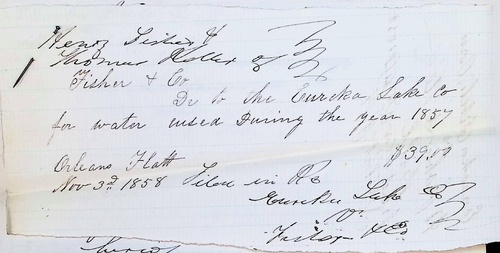 Henry Fisher
Thomas Keller of
Fisher & Co
Dr to the Eureka Lake Co
for water used During the year 1857
$39,00
Orleans Flatt
Nov 3d 1858 Filed in
Eureka Lake Co
v
Fisher & Co